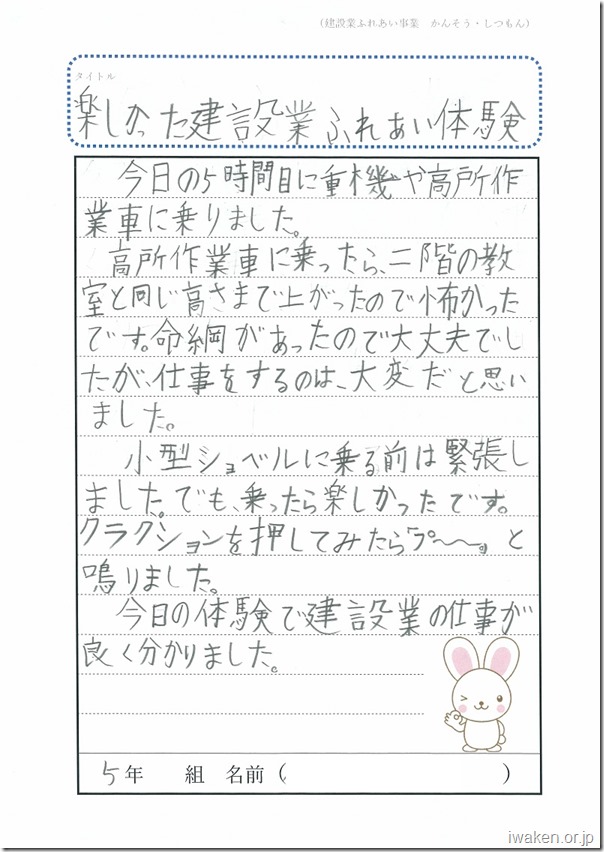 （建設業ふれあい事業　かんそう・しつもん）
タイトル
楽しかった建設業ふれあい体験
今日の5時間目に重機や高所作
業車に乗りました。
高所作業車に乗ったら、二階の教
室と同じ高さまで上がったので怖かった
です。命綱があったので大丈夫でし
たが、仕事をするのは、大変だと思い
ました。
小型ショベルに乗る前は緊張し
ました。でも、乗ったら楽しかったです。
クラクションを押してみたら「プ〜〜。」と
鳴りました。
今日の体験で建設業の仕事が
良く分かりました。
5年　組　名前（　）
iwaken.or.jp